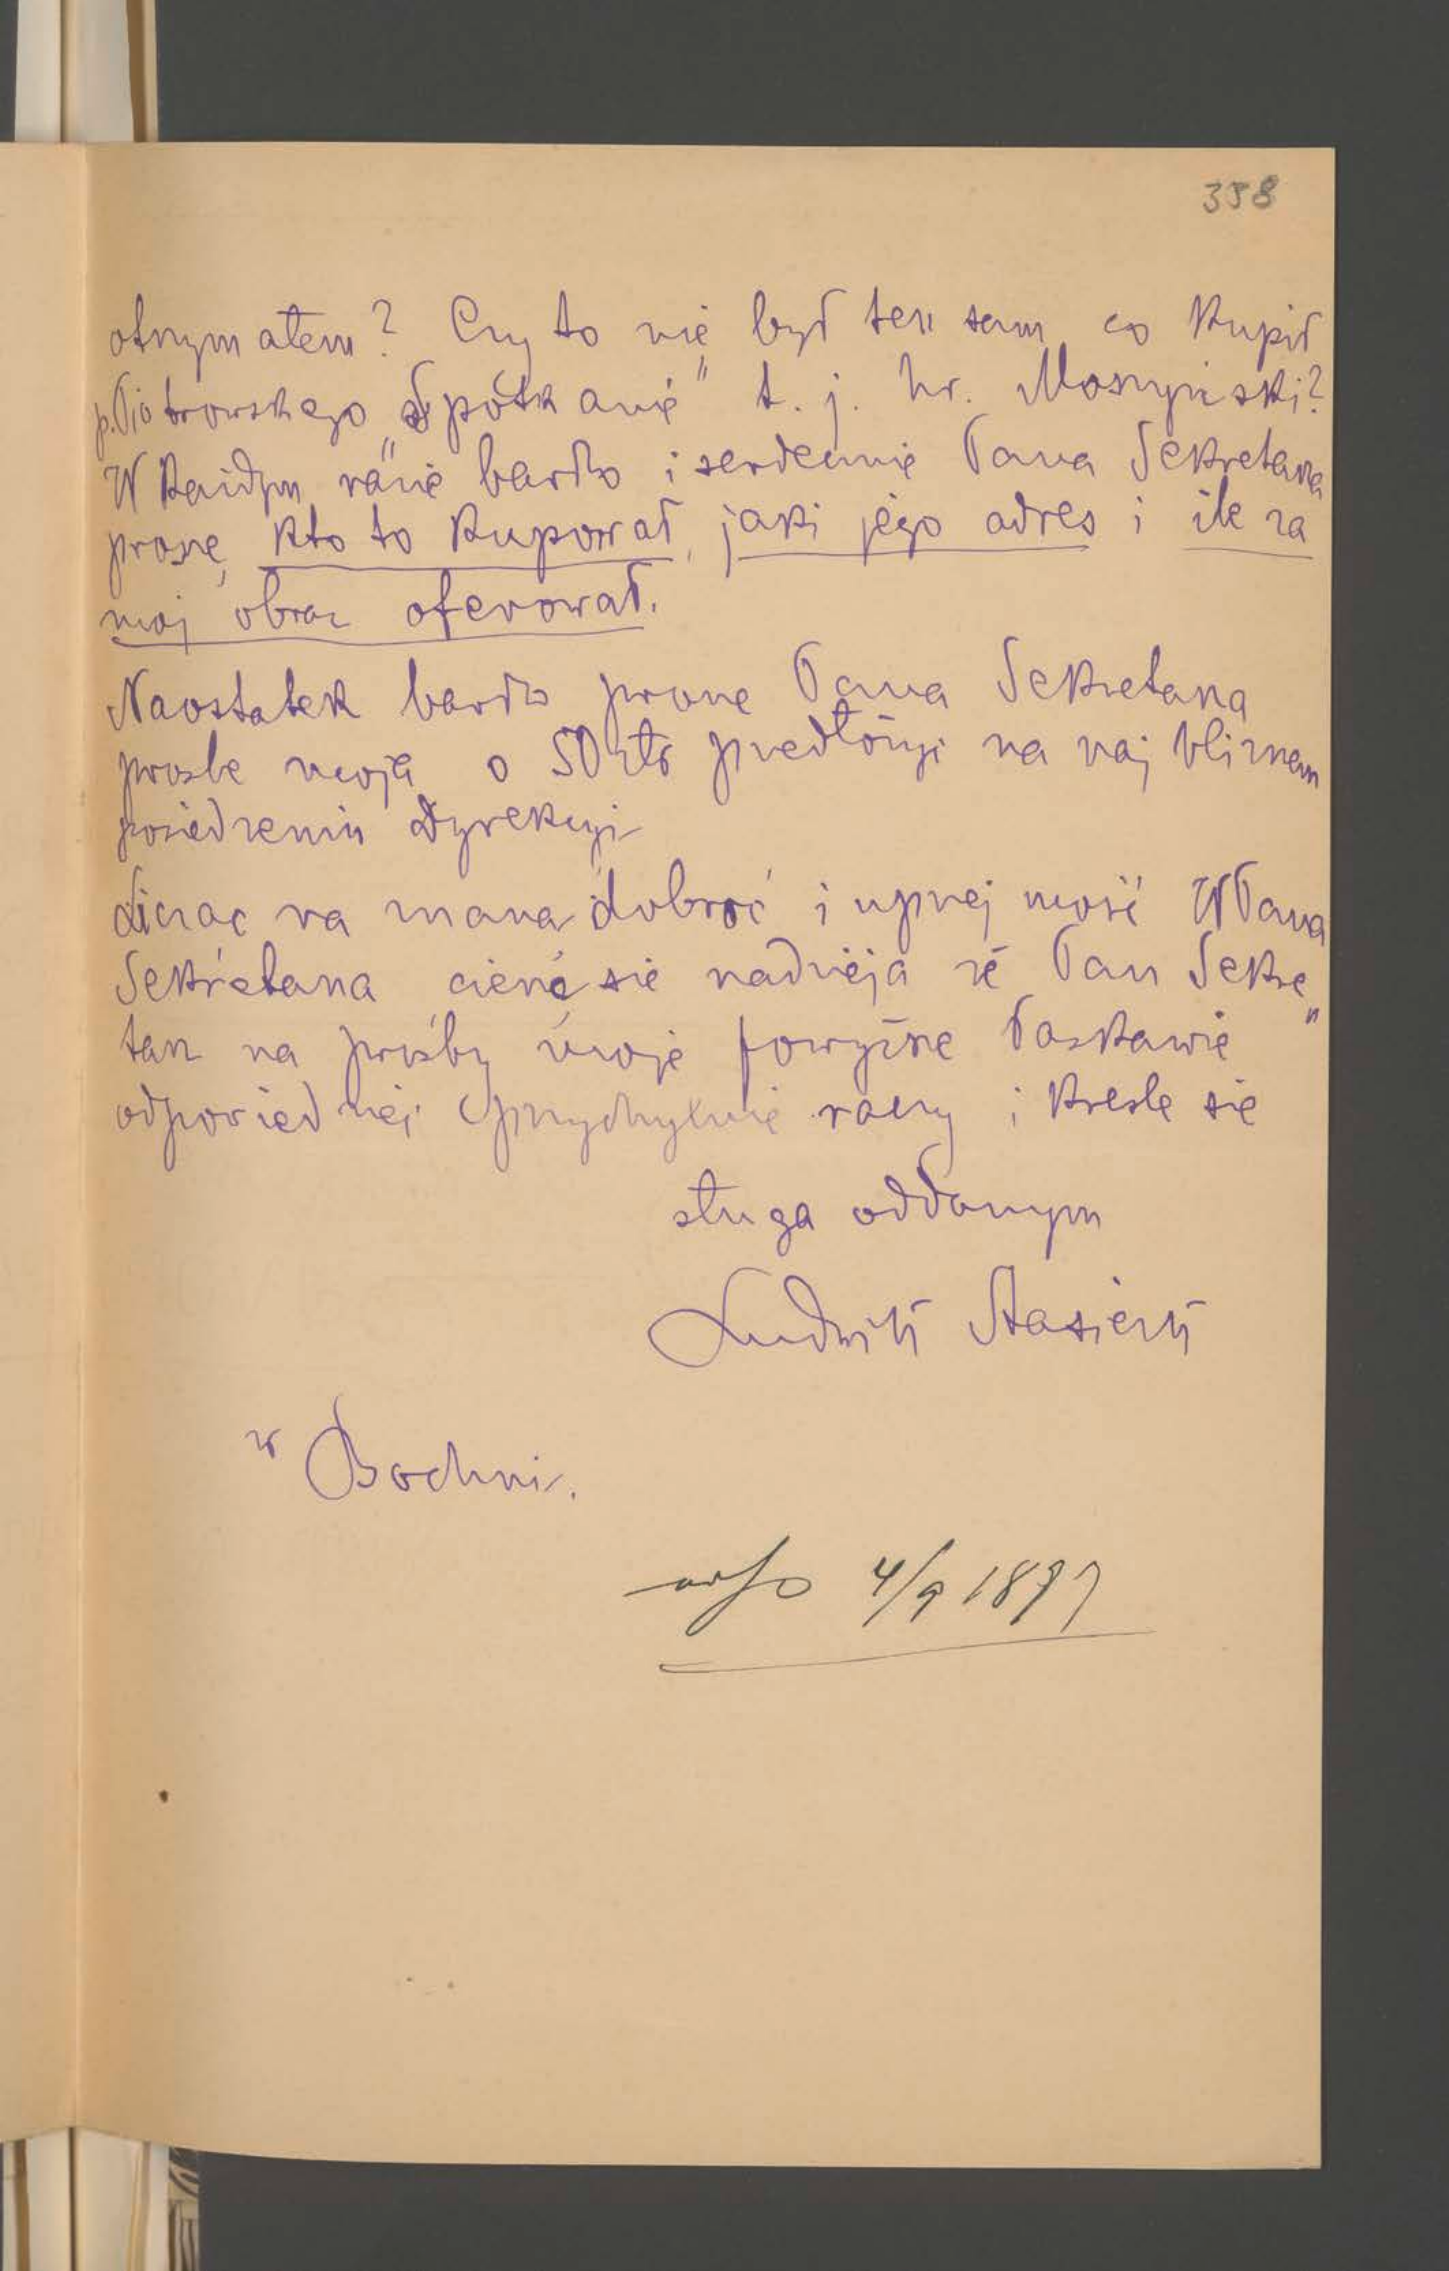 358
otrzymałem? Czy to nie był ten sam co kupił
p. Piotrowskiego „Spotkanie" t. j. hr. Moszyński?
W każdym razie bardzo i serdecznie Pana Sekretarza
proszę, kto to kupował, jaki jego adres i ile za
moj obraz oferował.
Naostatek bardzo proszę Pana Sekretarza
prosbe moją o 50 złr przedłożyć na najbliższem
posiedzeniu Dyrekcyi
Licząc na znaną dobroć i uprzejmość WPana
Sekretarza cieszę się nadzieją że Pan Sekre„
tarz na prośby moje powyższe łaskawie
odpowiedzieć i przychylnie raczy i kreslę się
sługa oddanym
Ludwik Stasiak
w Bochni.
4/9 1897